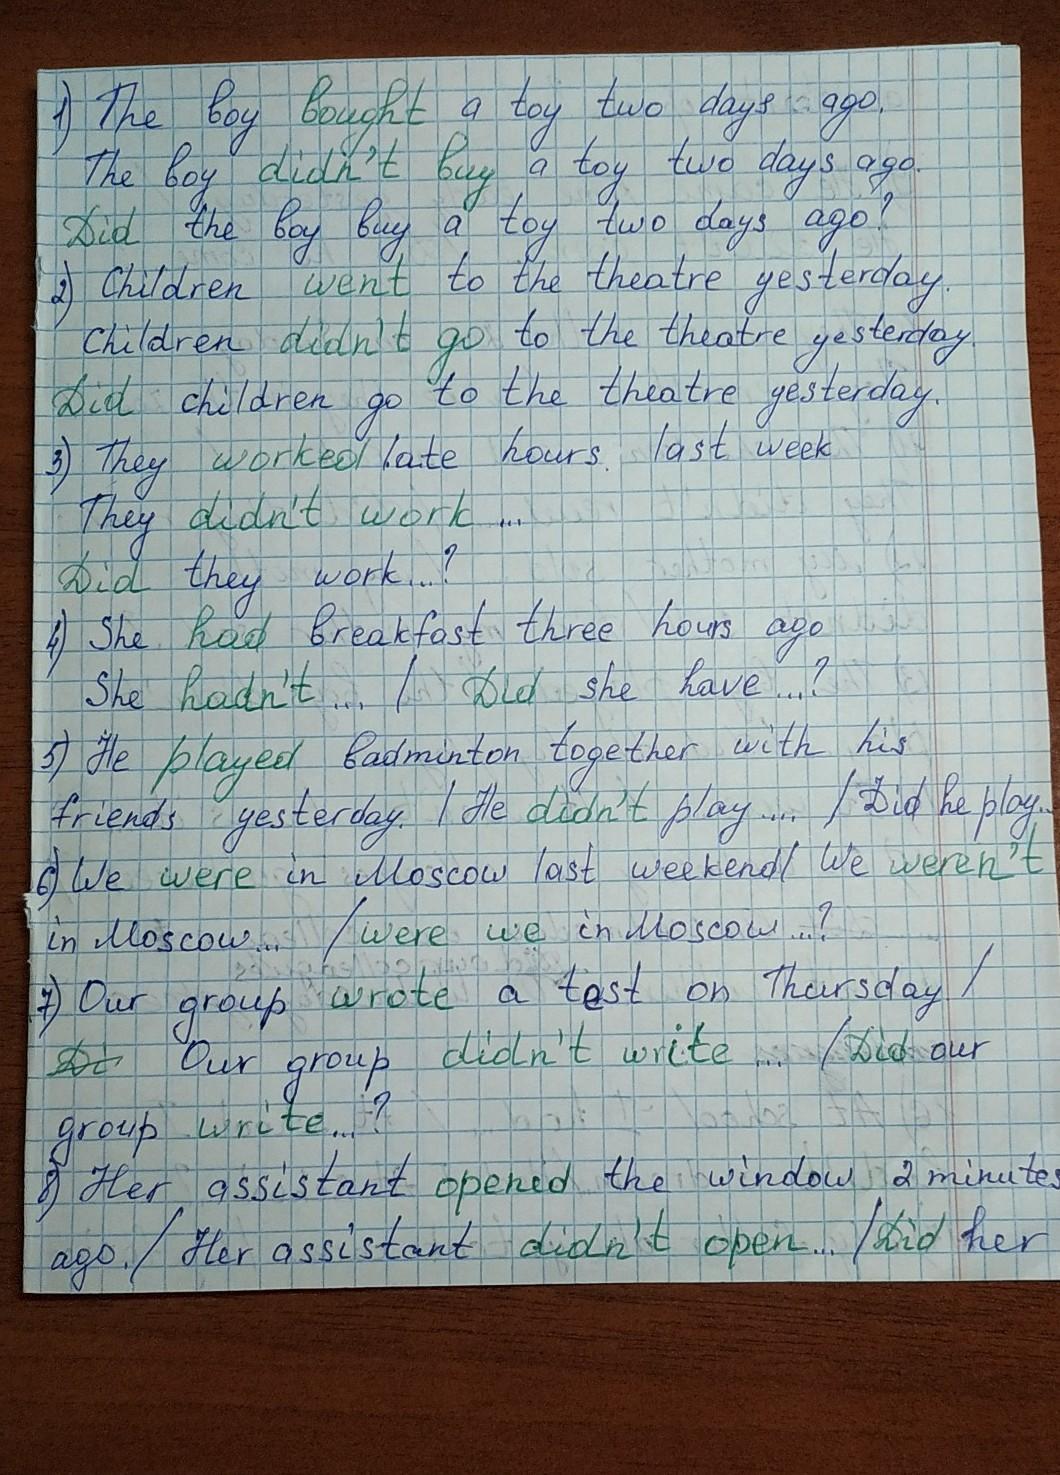 1) The boy bought a toy two days ago.
The boy didn't buy a toy two days ago.
Did the boy buy a toy two days ago?
2) Children went to the theatre yesterday.
Children didn't go to the theatre yesterday.
Did children go to the theatre yesterday.
3) They worked late hours. last week
They didn't work ...
Did they work...?
4) She had breakfast three hours ago
She hadn't ... / Did she have ...?
5) He played badminton together with his
friends yesterday. / He didn't play .... / Did he play...
6) We were in Moscow last weekend/ We weren't
in Moscow... / were we in Moscow ...?
7) Our group wrote a test on Thursday /
Di Our group didn't write ... / Did our
group write...?
8) Her assistant opened the window 2 minutes
ago. / Her assistant didn't open... / Did her